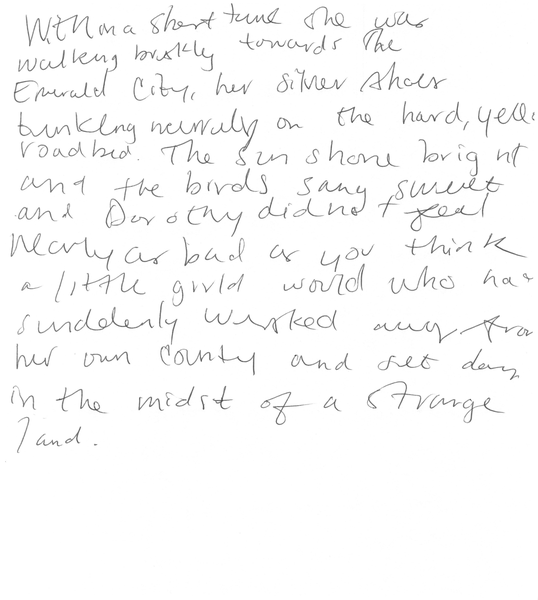 Within a short time she was
walking briskly towards the
Emerald City, her silver shoes
tinkling merrily on the hard, yell
roadbed. The sun shone bright
and the birds sang sweet
and Dorothy did not feel
nearly as bad as you think
a little girld would who ha
suddenly wisked away fro
her own county and set down
in the midst of a strange
land.